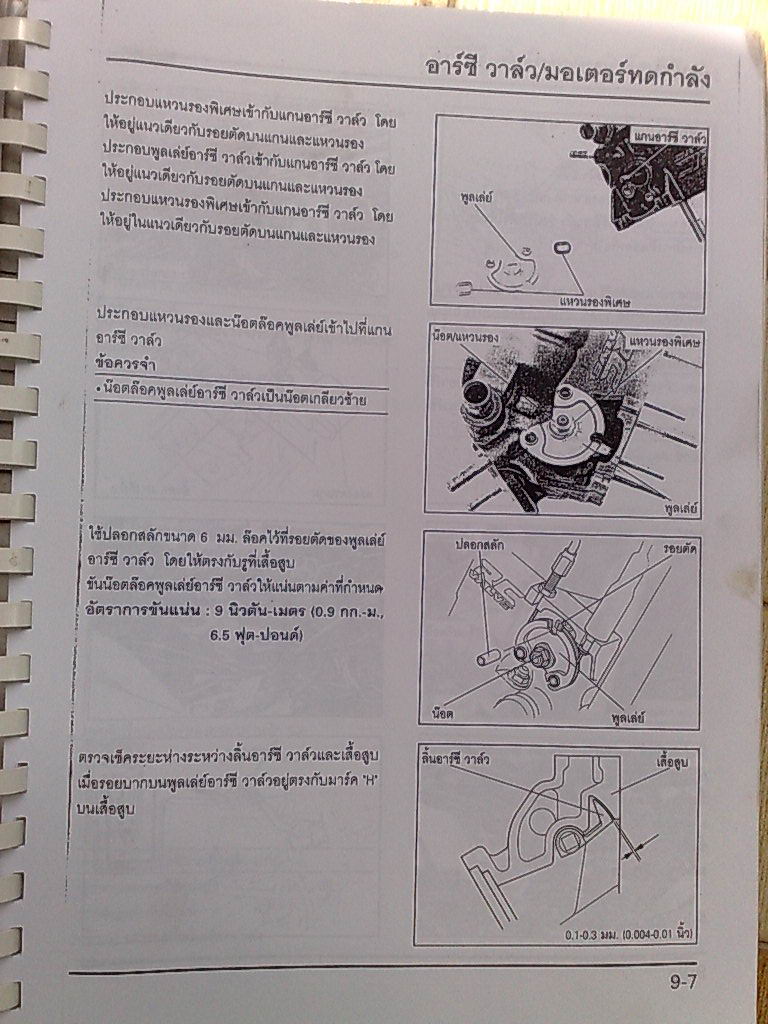 อาร์ซี วาล์ว/มอเตอร์ทดกำลัง
ประกอบแหวนรองพิเศษเข้ากับแกนอาร์ซี วาล์ว โดย
ให้อยู่แนวเดียวกับรอยตัดบนแกนและแหวนรอง
ประกอบพูลเล่ย์อาร์ซี วาล์วเข้ากับแกนอาร์ซี วาล์ว โดย
ให้อยู่แนวเดียวกับรอยตัดบนแกนและแหวนรอง
ประกอบแหวนรองพิเศษเข้ากับแกนอาร์ซี วาล์ว โดย
ให้อยู่ในแนวเดียวกับรอยตัดบนแกนและแหวนรอง
แกนอาร์ซี วาล์ว
พูลเล่ย์
แหวนรองพิเศษ
ประกอบแหวนรองและน๊อตล๊อคพูลเล่ย์เข้าไปที่แกน
อาร์ซี วาล์ว
ข้อควรจำ
• น๊อตล๊อคพูลเล่ย์อาร์ซี วาล์วเป็นน๊อตเกลียวซ้าย
น๊อต/แหวนรอง
แหวนรองพิเศษ
พูลเล่ย์
ใช้ปลอกสลักขนาด 6 มม. ล๊อคไว้ที่รอยตัดของพูลเล่ย์
อาร์ซี วาล์ว โดยให้ตรงกับรูที่เสื้อสูบ
ขันน๊อตล๊อคพูลเล่ย์อาร์ซี วาล์วให้แน่นตามค่าที่กำหนด
อัตราการขันแน่น : 9 นิวตัน-เมตร (0.9 กก.-ม.,
6.5 ฟุต-ปอนด์)
ปลอกสลัก
รอยตัด
น๊อต
พูลเล่ย์
ตรวจเช็คระยะห่างระหว่างลิ้นอาร์ซี วาล์วและเสื้อสูบ
เมื่อรอยบากบนพูลเล่ย์อาร์ซี วาล์วอยู่ตรงกับมาร์ค "H"
บนเสื้อสูบ
ลิ้นอาร์ซี วาล์ว
เสื้อสูบ
0.1-0.3 มม. (0.004-0.01 นิ้ว)
9-7